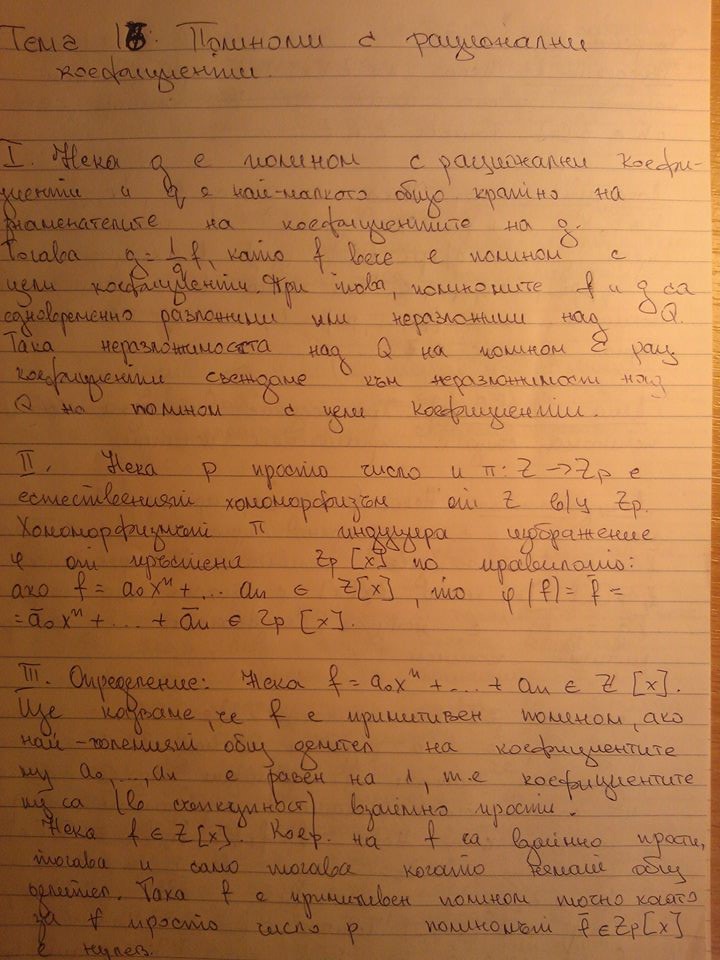 Тема 16. Полиноми с рационални
коефициенти.
I. Нека g е полином с рационални коефи-
циенти и q е най-малкото общо кратно на
знаменателите на коефициентите на g.
Тогава g = 1/q f, като f вече е полином с
цели коефициенти. При това, полиномите f и g са
едновременно разложими или неразложими над Q.
Така неразложимостта над Q на полином с рац.
коефициенти свеждаме към неразложимост над
Q на полином с цели коефициенти.
II. Нека p просто число и π: Z → Zp е
естественият хомоморфизъм от Z в/у Zp.
Хомоморфизмът π индуцира изображение
φ от пръстена Zp [x] по правилото:
ако f = a₀xⁿ + ... an ∈ Z[x], то φ(f) = f̄ =
= ā₀xⁿ + ... + ān ∈ Zp [x].
III. Определение: Нека f = a₀xⁿ + ... + an ∈ Z [x].
Ще казваме, че f е примитивен полином, ако
най-големият общ делител на коефициентите
му a₀, ..., an е равен на 1, т.е коефициентите
му са (в съвкупност) взаимно прости.
Нека f ∈ Z[x]. Коеф. на f са взаимно прости,
тогава и само тогава когато нямат общ
делител. Така f е примитивен полином точно когато
за ∀ просто число p полиномът f̄ ∈ Zp[x]
е нулев.